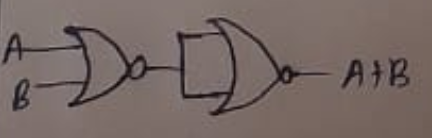 A
B
A+B